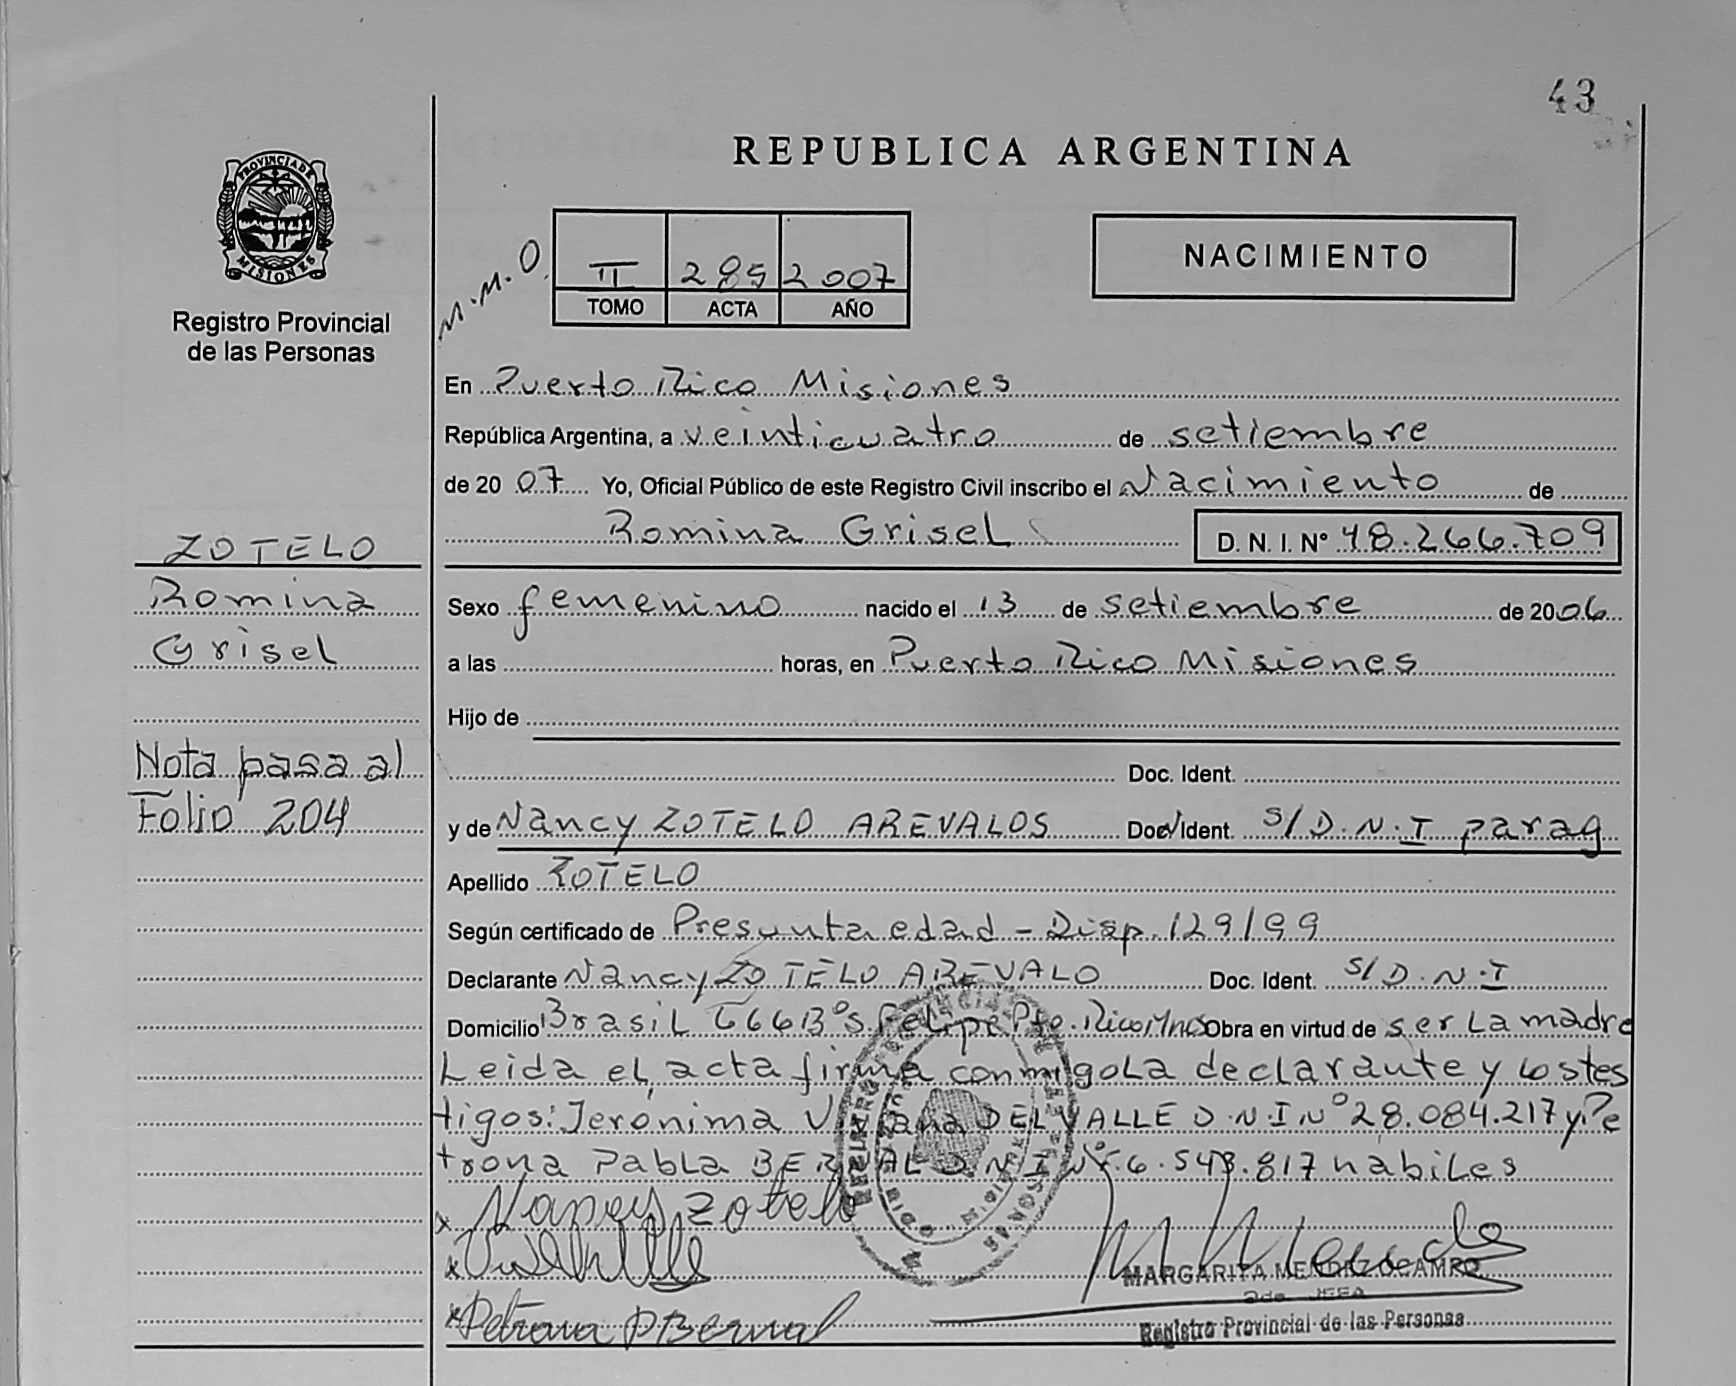 43
REPUBLICA ARGENTINA
PROVINCIA DE
MISIONES
Registro Provincial
de las Personas
M.M.O.
II 285 2007
TOMO ACTA AÑO
NACIMIENTO
En Puerto Rico Misiones
República Argentina, a veinticuatro de setiembre
de 2007 Yo, Oficial Público de este Registro Civil inscribo el Nacimiento de
Romina Grisel D. N. I. Nº 48.266.709
ZOTELO
Romina
Grisel
Nota pasa al
Folio 204
Sexo femenino nacido el 13 de setiembre de 2006
a las horas, en Puerto Rico Misiones
Hijo de
Doc. Ident.
y de Nancy ZOTELO AREVALOS Doc. Ident. S/D.N.I parag
Apellido ZOTELO
Según certificado de Presunta edad - Disp. 129/99
Declarante Nancy ZOTELO AREVALO Doc. Ident. S/D.N.I
Domicilio Brasil 666 Bº S. Felipe Pto. Rico Mnes Obra en virtud de ser La madre
Leida el acta firma conmigo La declarante y Los tes
tigos: Jerónima Viviana DEL VALLE D.N.I Nº 28.084.217 y Pe
trona Pabla BERNAL D.N.I Nº 6.548.817 habiles
x Nancy Zotelo
x
x Petrona P Bernal
MARGARITA MENDEZ OCAMPO
2da. JEFA
Registro Provincial de las Personas